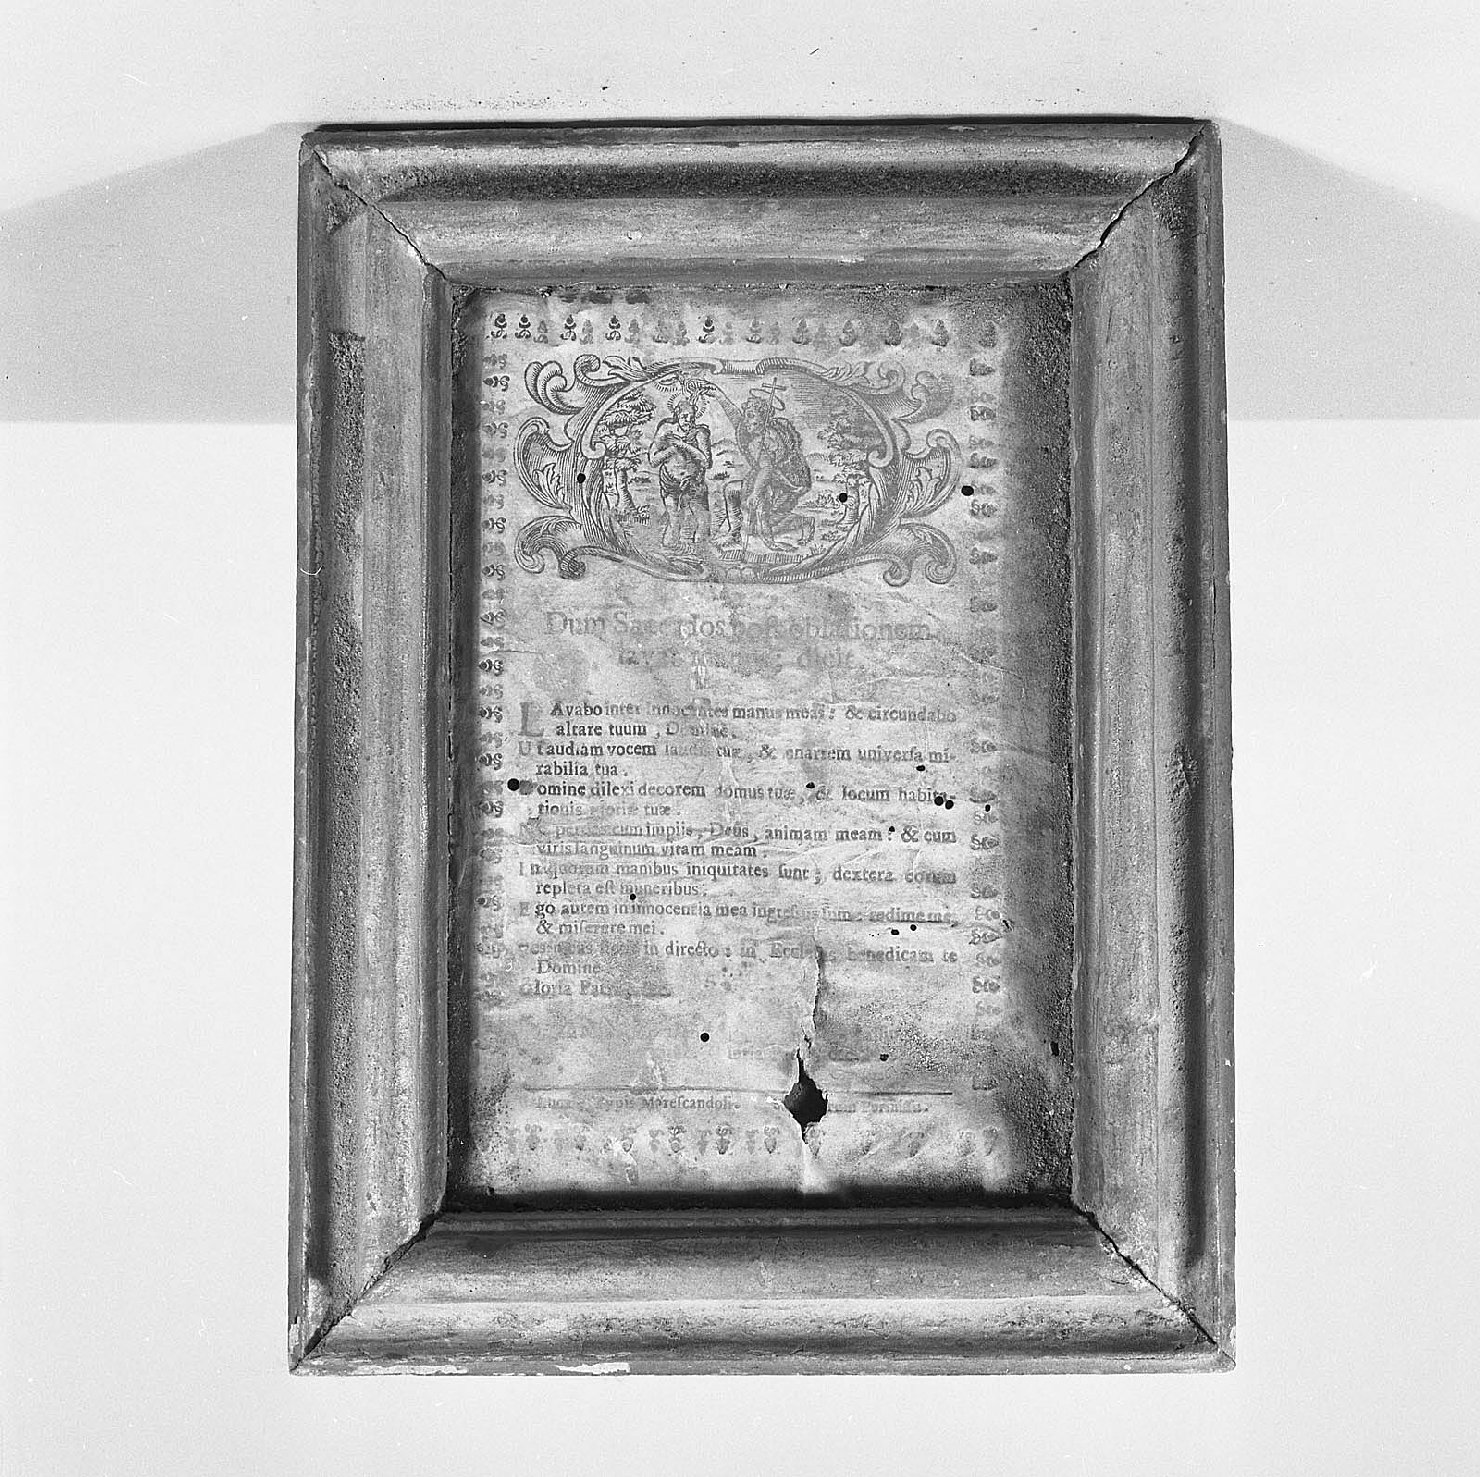 Dum Sacerdos post oblationem
lavat manus, dicit.
LAvabo inter innocentes manus meas: & circundabo
altare tuum, Domine.
Ut audiam vocem laudis tuæ, & enarrem universa mi-
rabilia tua.
Domine dilexi decorem domus tuæ, & locum habita-
tionis gloriæ tuæ.
Ne perdas cum impiis, Deus, animam meam: & cum
viris sanguinum vitam meam.
In quorum manibus iniquitates sunt; dextera eorum
repleta est muneribus.
Ego autem in innocentia mea ingressus sum: redime me,
& miserere mei.
Pes meus stetit in directo: in Ecclesiis benedicam te
Domine.
Gloria Patri,
Lucæ, Typis Marescandoli.